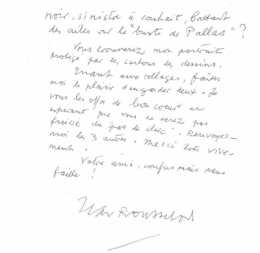 noir, sinistre à souhait, battant
des ailes sur le "buste de Pallas" ?
Vous trouverez mon portrait
protégé par les cartons des dessins.
Quant aux collages, faites
moi le plaisir d'en garder deux. Je
vous les offre de bon coeur en
espérant que vous ne serez pas
froissé du pas de clerc. Renvoyez-
moi les 3 autres. Merci très vive-
ment.
Votre ami, confus mais sans
faille !
Jean Rousselot